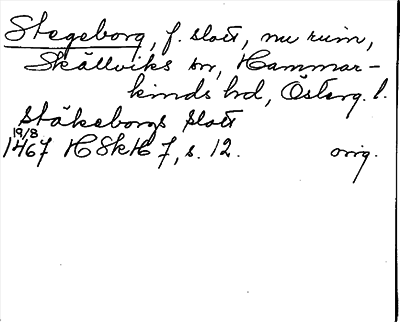 Stegeborg, f. slott, nu ruin,
Skällviks sn, Hammar-
kinds hd, Österg. l.
Stäkeborgs slott
19/8
1467 HSkH 7, s. 12. orig.